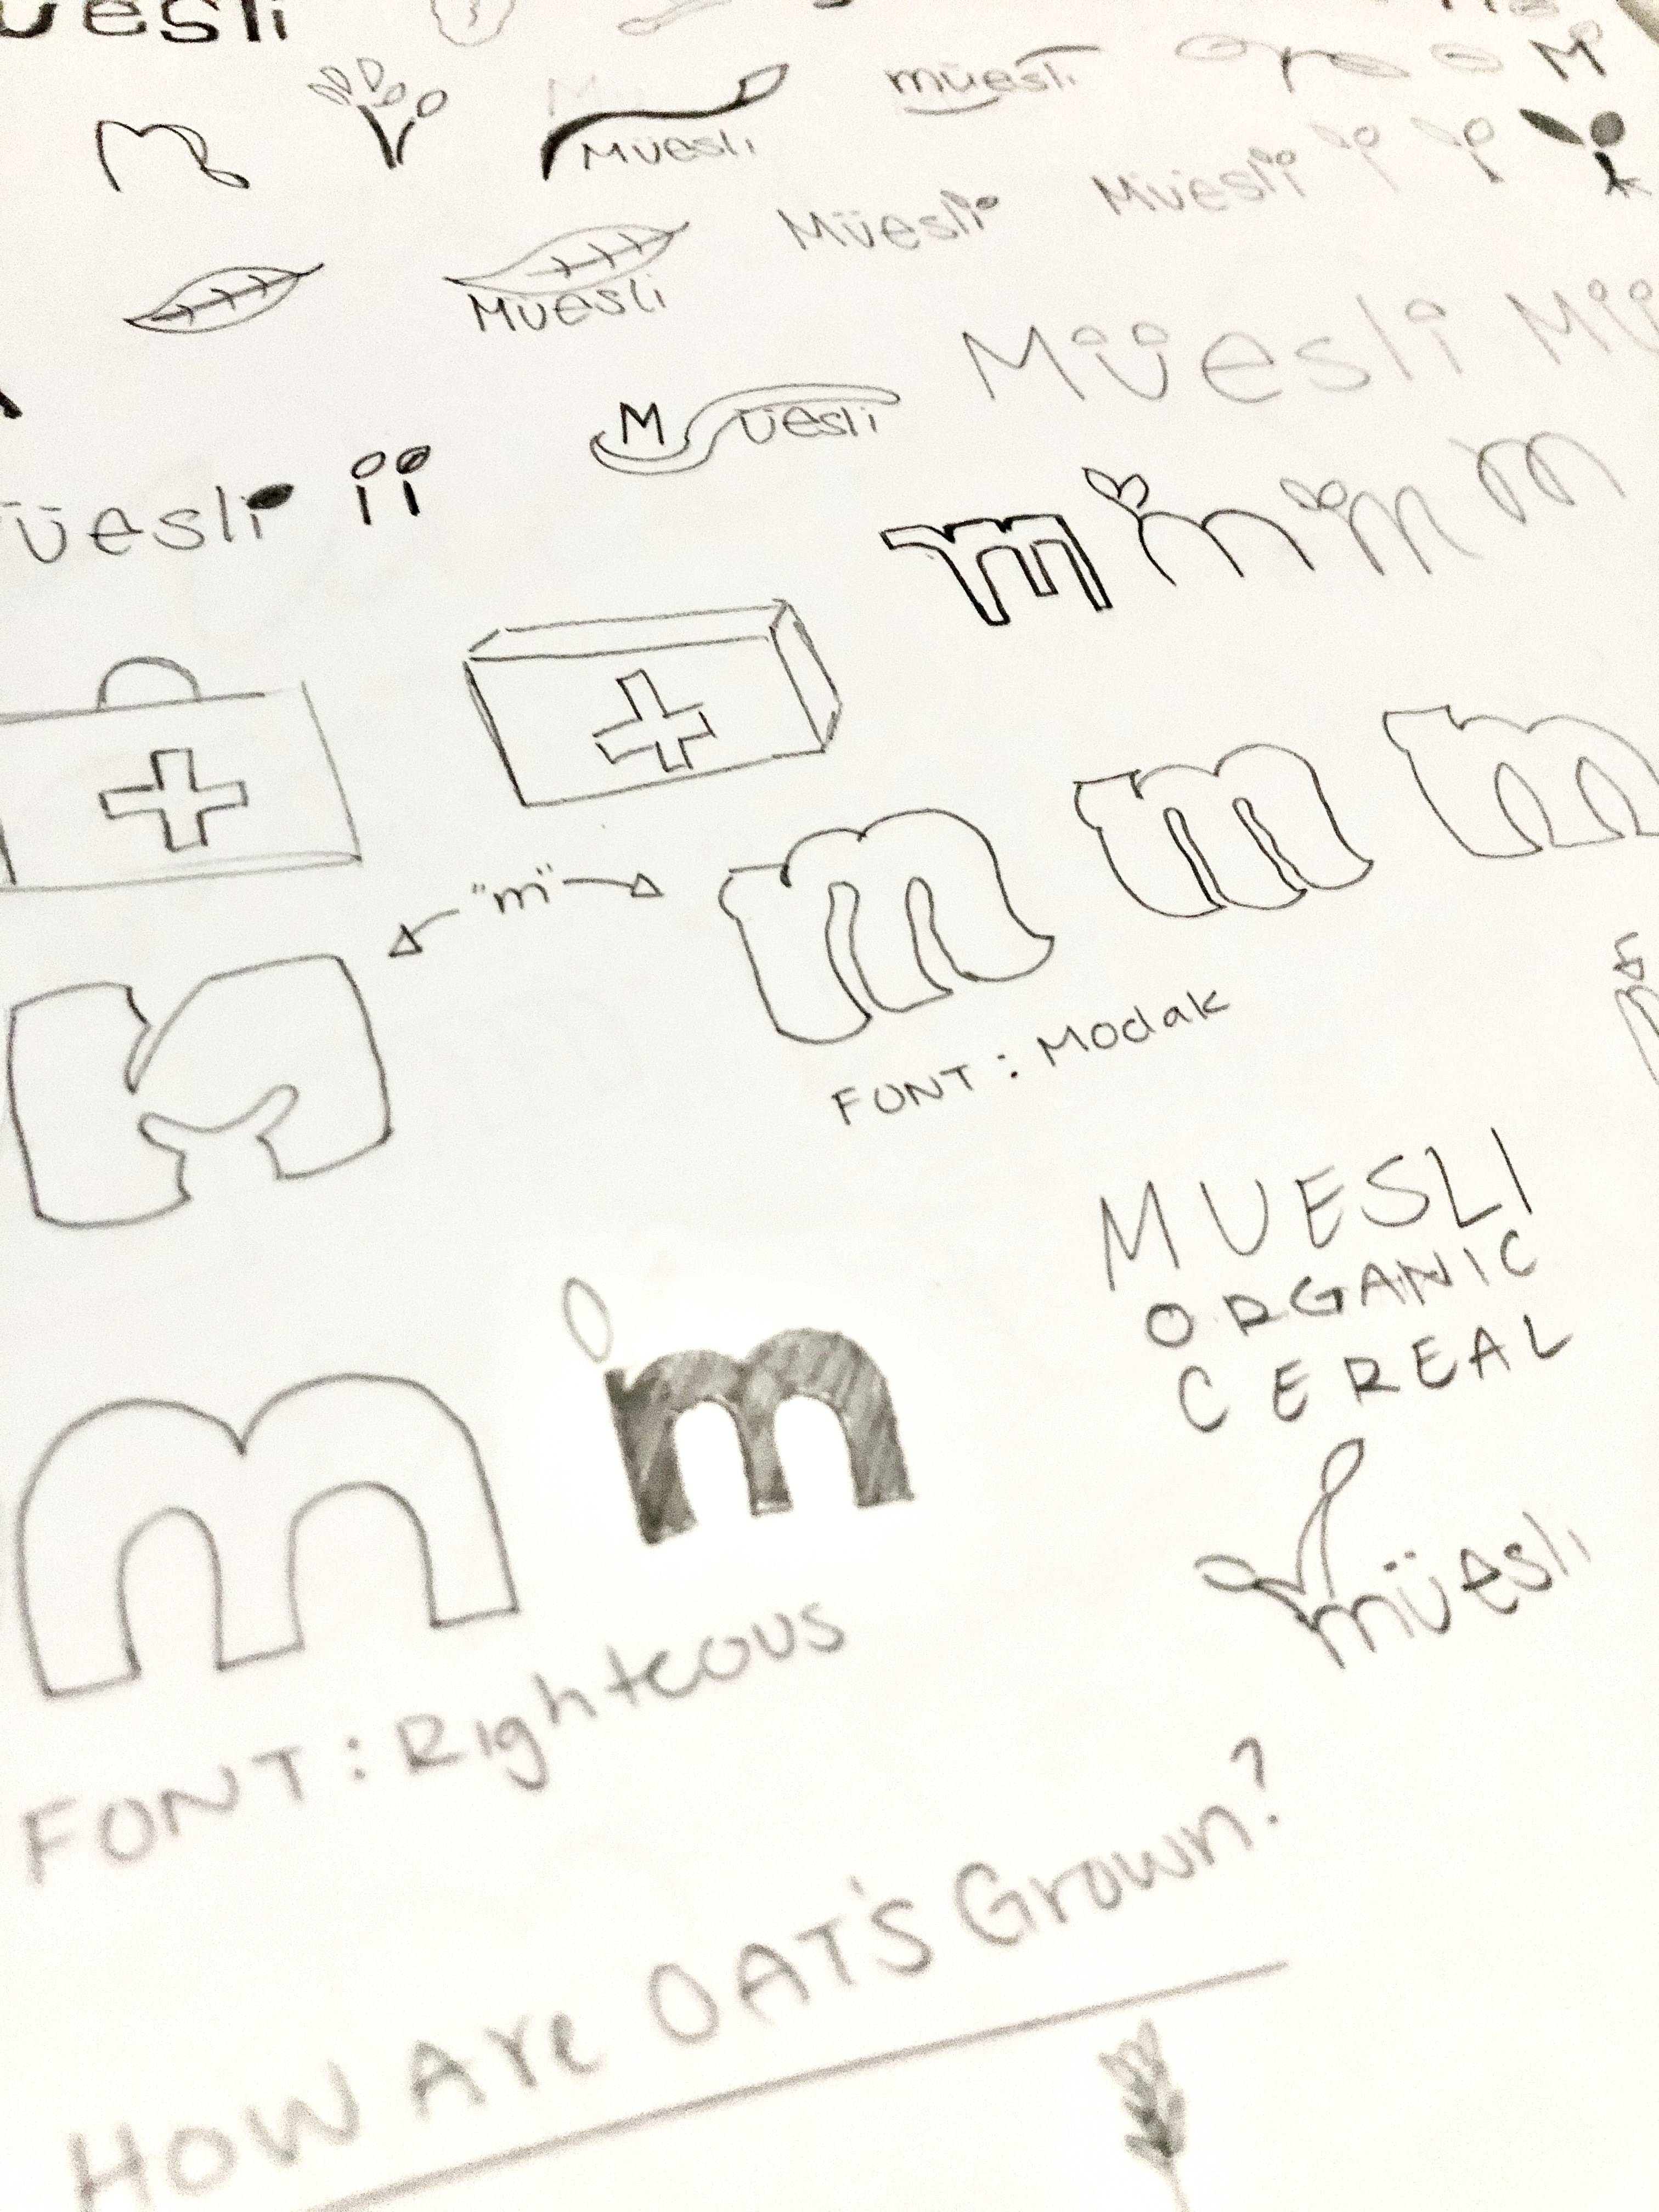 uesli
M
müesli
Müesli
Müesli
Müesli
Müesli
Müesli
Müesli Mü
M üesli
üesli ii
m m m m
"m"
m m m
m
FONT: Modak
MUESLI
ORGANIC
CEREAL
m m
müesli
FONT: Righteous
How Are OAT'S Grown?